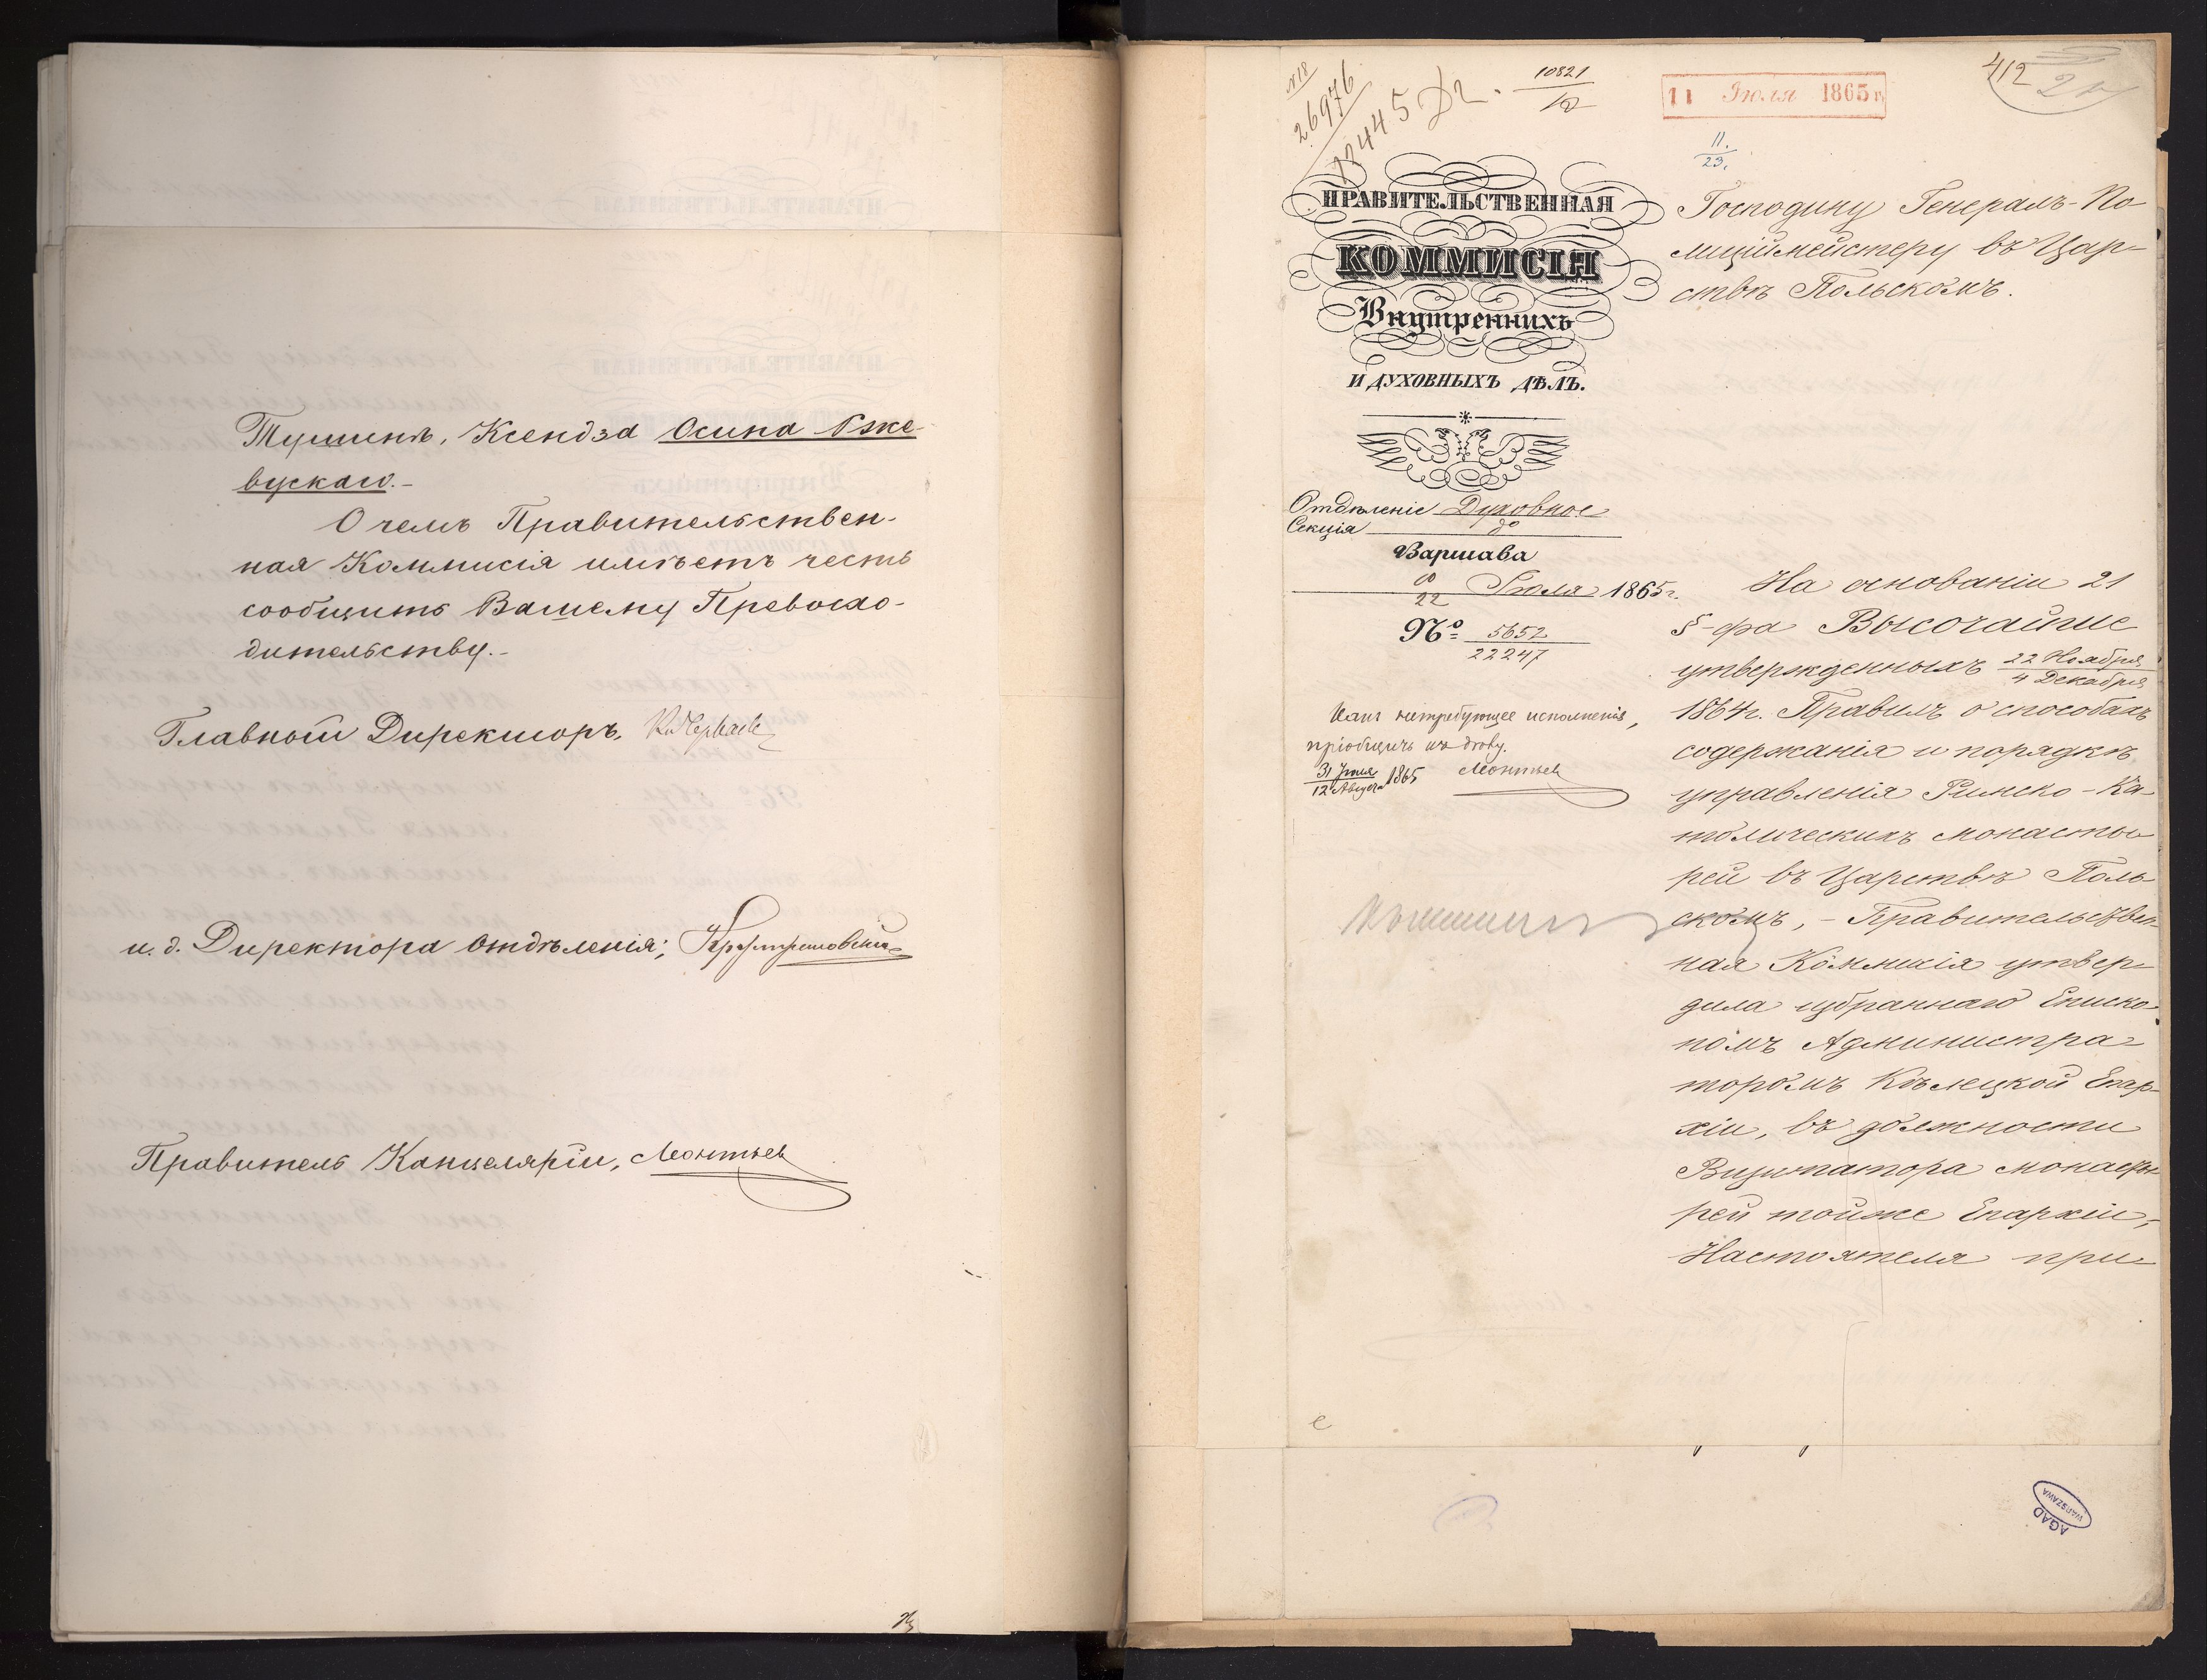 Тушинѣ, Ксендза Осипа Рже-
вускаго.-
О чемъ Правительствен-
ная Коммисія имѣетъ честь
сообщить Вашему Превосхо-
дительству.-
Главный Директоръ,
и. д. Директора Отдѣленія;
Правитель Канцеляріи, Леонтьев
№18
26976
10821
11 Іюля 1865 г.
412
11.
23.
ПРАВИТЕЛЬСТВЕННАЯ
КОММИСІЯ
Внутреннихъ
И ДУХОВНЫХЪ ДѢЛЪ.
Отдѣленіе Духовное
Секція do
Варшава
10
22 Іюля 1865 г.
№ 5652
22247
Какъ нетребующее исполненія,
пріобщить къ дѣлу.
31 Іюля
12 Августа 1865 Леонтьев
Господину Генералъ-По
лиціймейстеру въ Цар-
ствѣ Польскомъ.
На основаніи 21
§-фа Высочайше
утвержденныхъ 22 Ноября
4 Декабря
1864 г. Правилъ о способахъ
содержанія и порядкѣ
управленія Римско-Ка-
толическихъ монасты
рей въ Царствѣ Поль-
скомъ, - Правительствен-
ная Коммисія утвер-
дила избраннаго Еписко-
помъ Администра-
торомъ Кѣлецкой Епар-
хіи, въ должности
Визитатора монасты
рей тойже Епархіи,
Настоятеля при-
с
AGAD
WARSZAWA